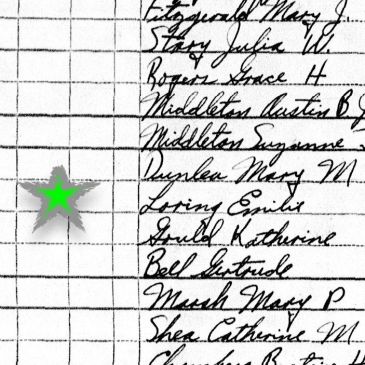 Fitzgerald Mary J.
Story Julia W.
Rogers Grace H
Middleton Austin B
Middleton Suzanne
Dunlea Mary M
Loring Emilie
Gould Katherine
Bell Gertrude
Marsh Mary P
Shea Catherine M
Chambers